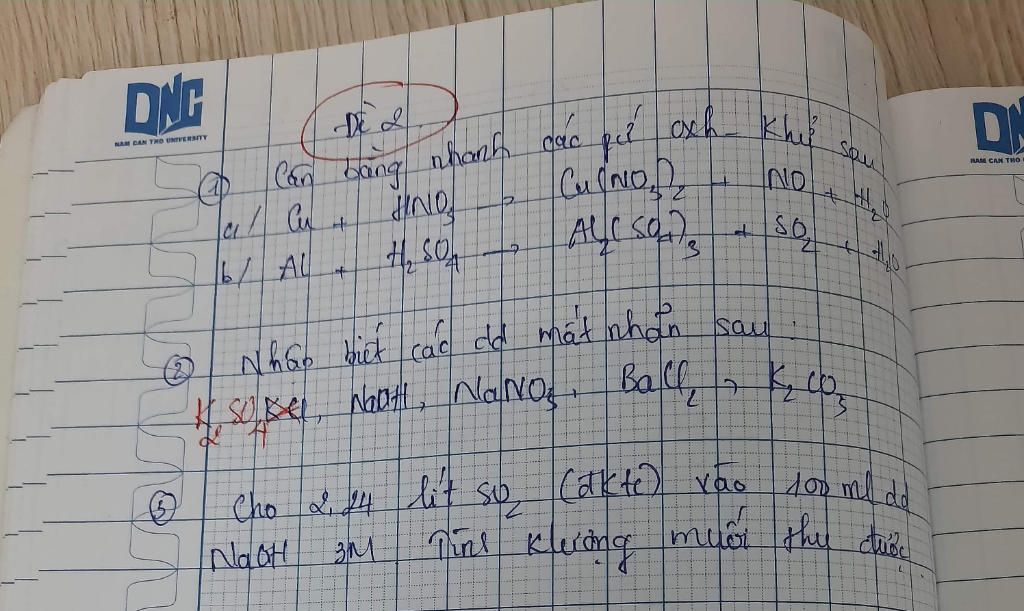 DNC
NAM CAN THO UNIVERSITY
Đề 2
① Cân bằng nhanh các pứ oxh - khử sau
a/ Cu + HNO3 → Cu(NO3)2 + NO + H2O
b/ Al + H2SO4 → Al2(SO4)3 + SO2 + H2O
② Nhận biết các dd mất nhãn sau:
K2SO4, NaOH, NaNO3, BaCl2, K2CO3
③ Cho 2,24 lít SO2 (đktc) vào 100 ml dd
NaOH 3M Tính klượng muối thu được
DN
NAM CAN THO